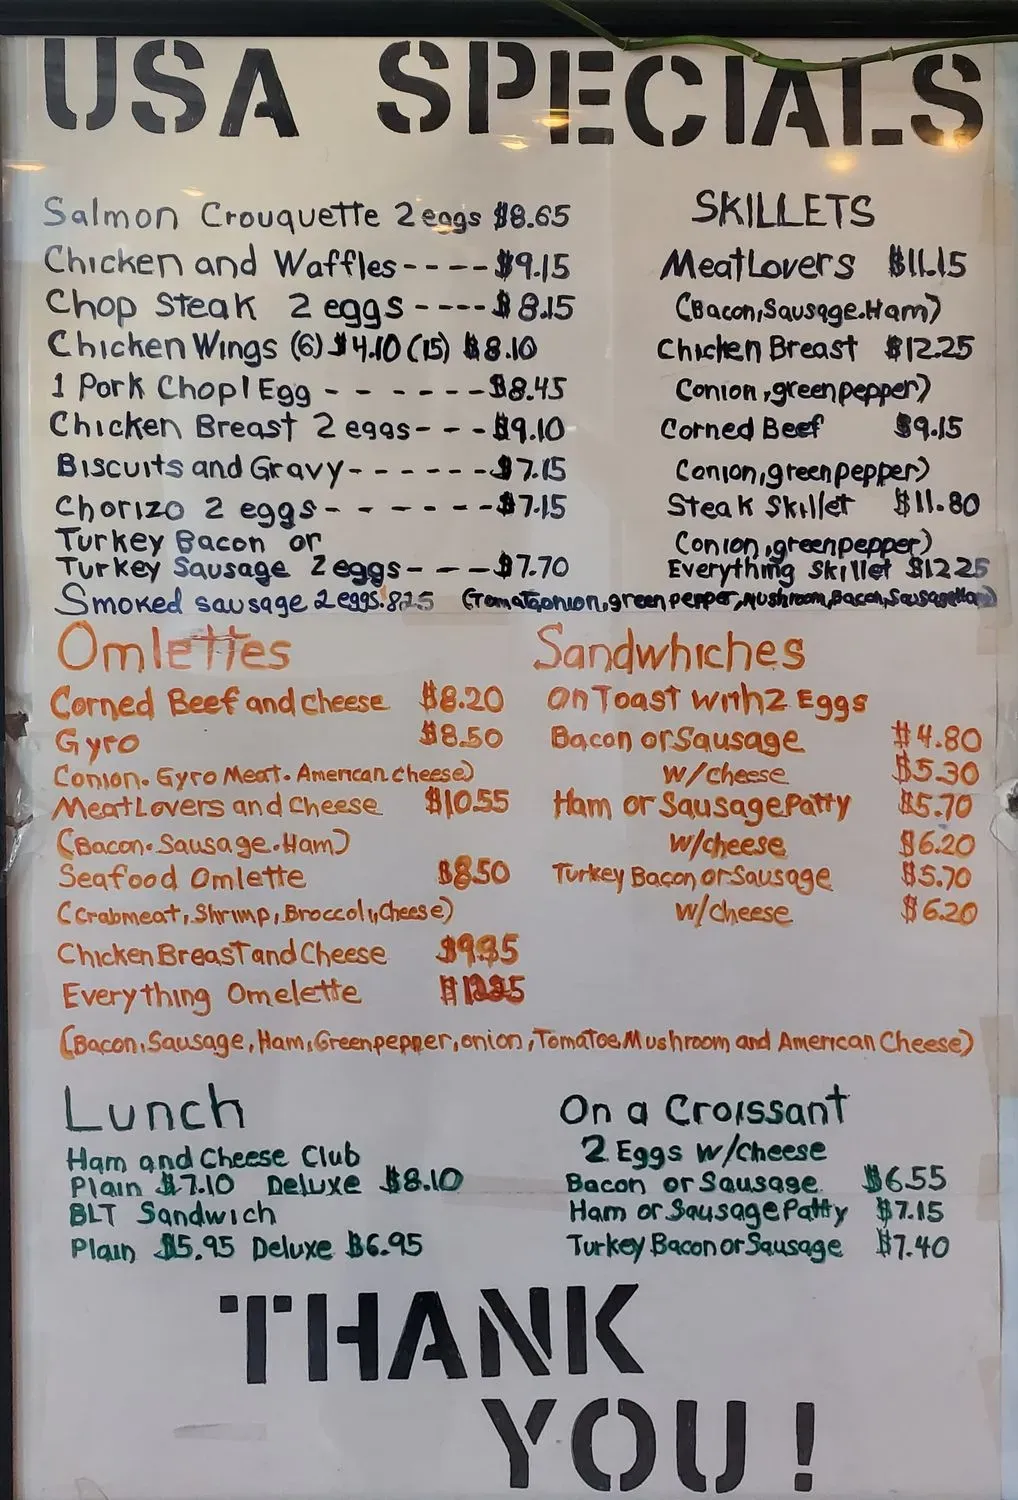 USA SPECIALS
Salmon Crouquette 2 eggs $8.65
Chicken and Waffles----$9.15
Chop Steak 2 eggs ----$8.15
Chicken Wings (6) $4.10 (15) $8.10
1 Pork Chop 1 Egg - - - - - -$8.45
Chicken Breast 2 eggs- - -$9.10
Biscuits and Gravy- - - - - -$7.15
Chorizo 2 eggs- - - - - - -$7.15
Turkey Bacon or
Turkey Sausage 2 eggs- - - -$7.70
Smoked sausage 2 eggs. 8.25
SKILLETS
MeatLovers $11.15
(Bacon,Sausage.Ham)
Chicken Breast $12.25
(onion,green pepper)
Corned Beef $9.15
(onion,green pepper)
Steak Skillet $11.80
(onion,green pepper)
Everything Skillet $12.25
(Tomato,onion,green pepper,Mushroom,Bacon,Sausage,Ham)
Omlettes
Corned Beef and Cheese $8.20
Gyro $8.50
(onion. Gyro Meat. American cheese)
MeatLovers and Cheese $10.55
(Bacon. Sausage.Ham)
Seafood Omlette $8.50
(Crabmeat, Shrimp, Broccoli,Cheese)
Chicken Breast and Cheese
Everything Omelette
(Bacon,Sausage, Ham,Greenpepper,onion,Tomatoe,Mushroom and American Cheese)
Sandwhiches
On Toast with 2 Eggs
Bacon or Sausage $4.80
w/cheese $5.30
Ham or Sausage Patty $5.70
w/cheese $6.20
Turkey Bacon or Sausage $5.70
w/cheese $6.20
Lunch
Ham and Cheese Club
Plain $7.10 Deluxe $8.10
BLT Sandwich
Plain $5.95 Deluxe $6.95
On a Croissant
2 Eggs w/cheese
Bacon or Sausage $6.55
Ham or Sausage Patty $7.15
Turkey Bacon or Sausage $7.40
THANK
YOU!